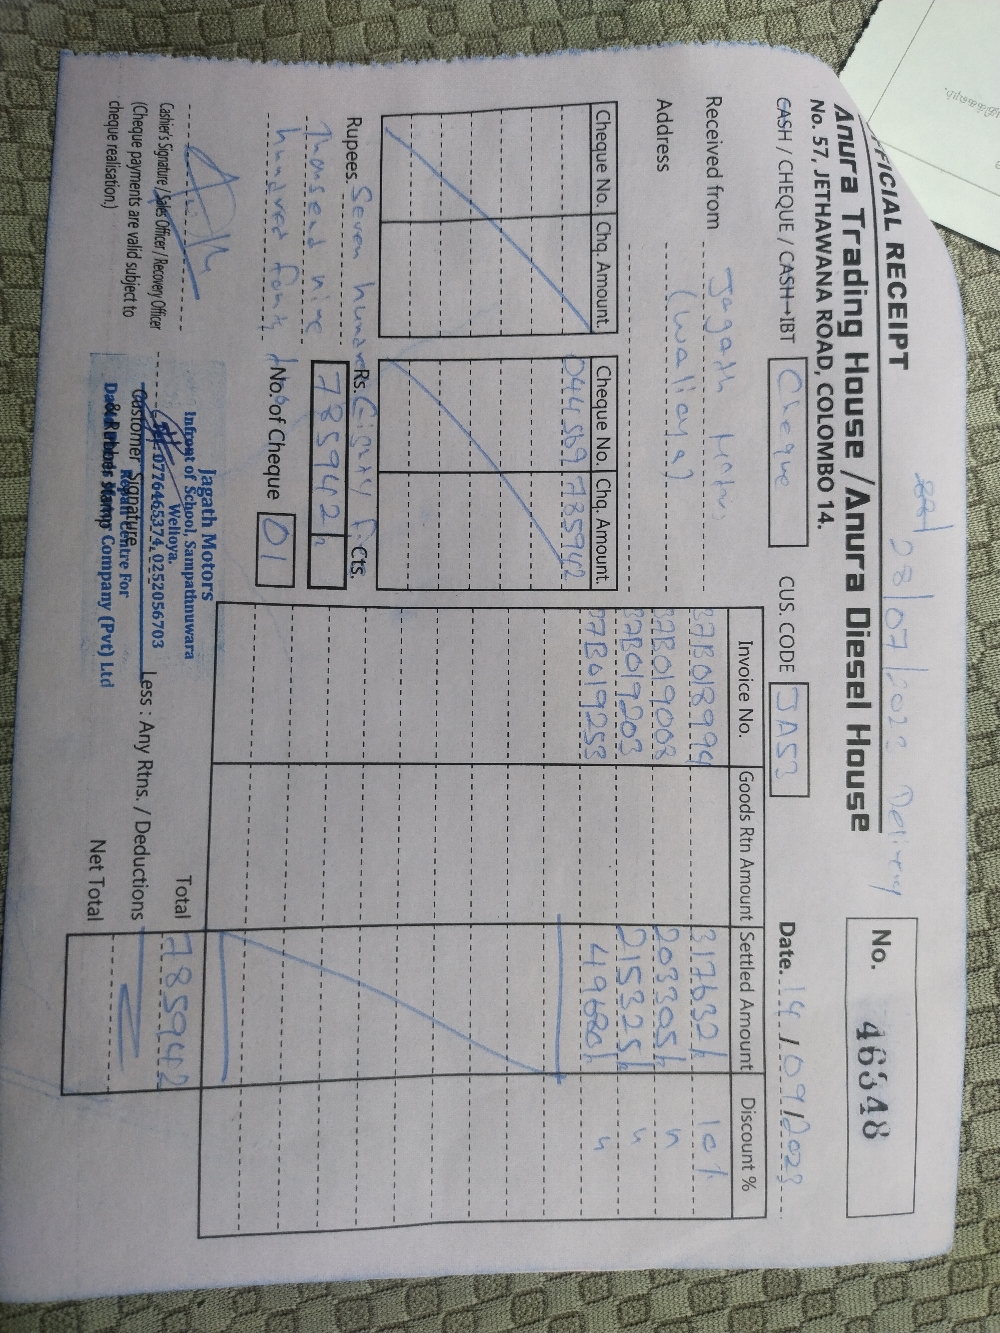 28/07/2023 Delivery
FFICIAL RECEIPT
Anura Trading House / Anura Diesel House
No. 57, JETHAWANA ROAD, COLOMBO 14.
No. 46348
CASH / CHEQUE / CASH→IBT Cheque CUS. CODE JA53 Date. 14/09/2023
Received from Jagath Motors
Address (Walioya)
Cheque No. Chq. Amount Cheque No. Chq. Amount.
044569 785942
Invoice No. Goods Rtn Amount Settled Amount Discount %
37B018994 317632/= 10%
37B019003 203305/= "
37B019203 215325/= "
37B019253 49680/= "
Rupees. Seven hundred Eighty Five
Thousand nine
hundred forty two
Rs. Cts.
785942/=
No. of Cheque 01
Total 785942
Less : Any Rtns. / Deductions
Net Total
Cashier's Signature / Sales Officer / Recovery Officer
(Cheque payments are valid subject to
cheque realisation.)
Customer Signature
& Rubber Stamp
Jagath Motors
Infront of School, Sampathnuwara
Welioya.
0776465374, 0252056703
Repair Centre For
Company (Pvt) Ltd